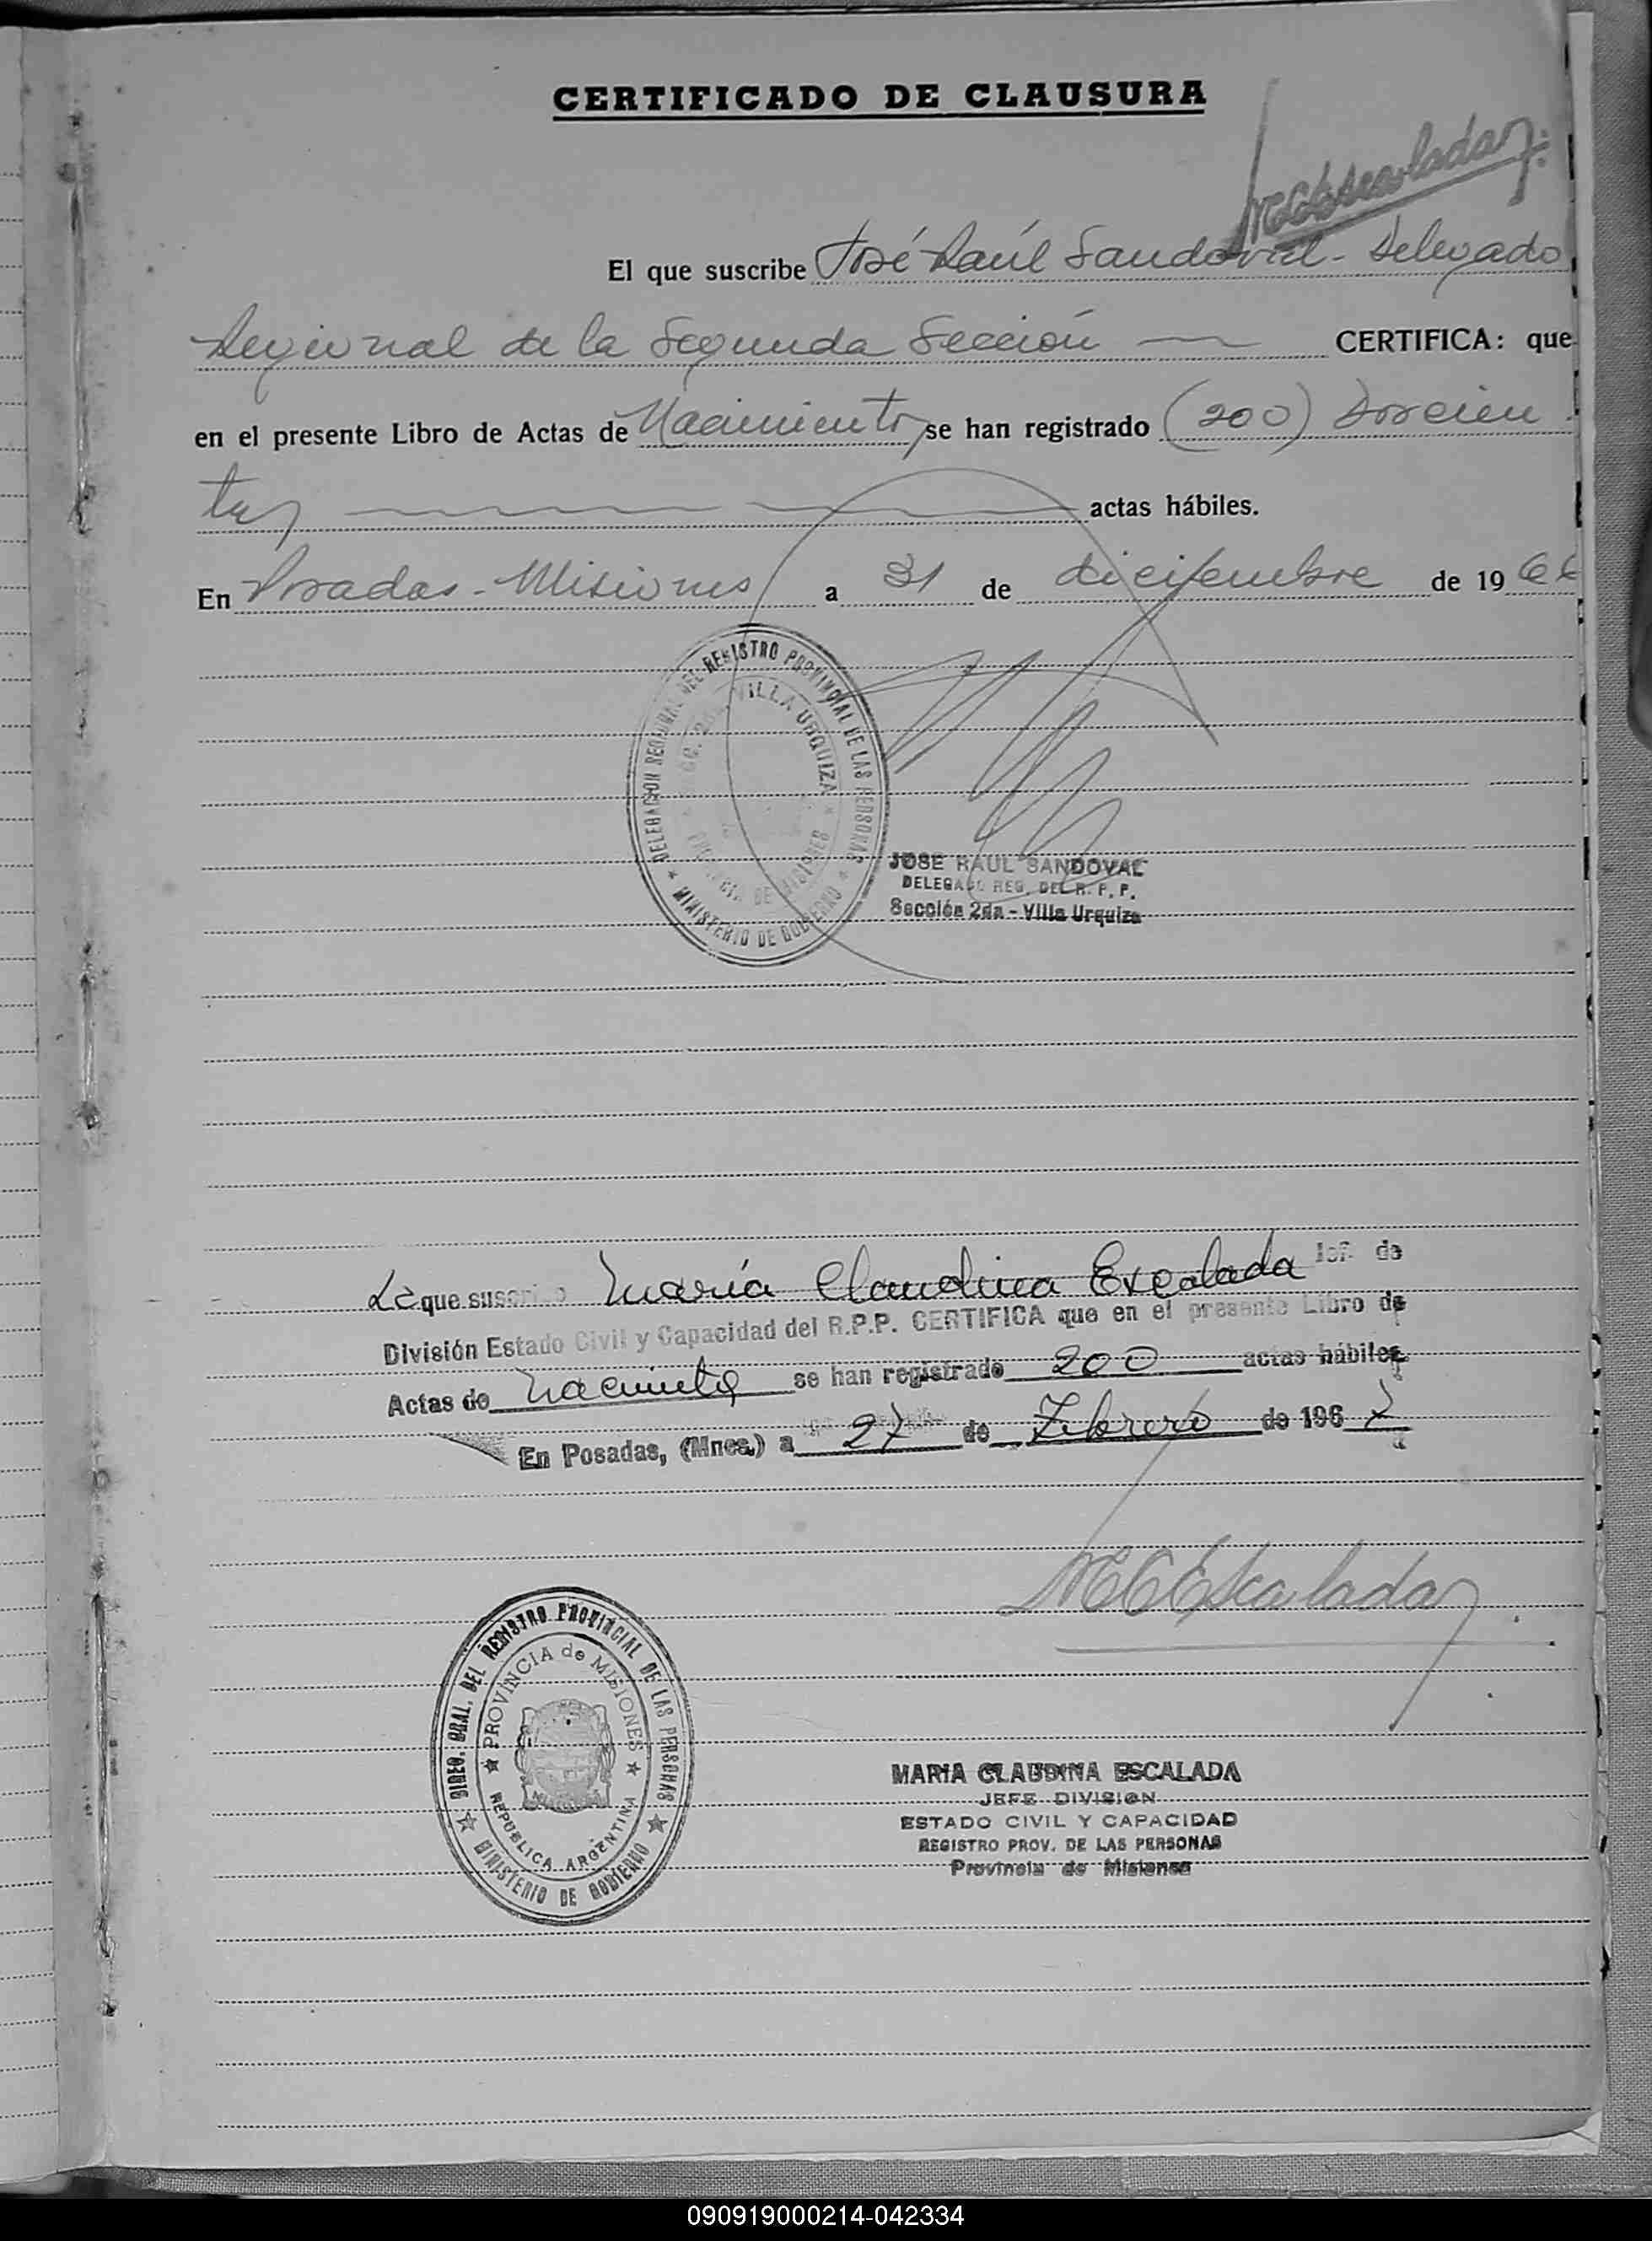 CERTIFICADO DE CLAUSURA
MCEscalada
El que suscribe José Raúl Sandoval - Delegado
Regional de la Segunda Sección CERTIFICA: que
en el presente Libro de Actas de Nacimientos se han registrado (200) Doscien
tas actas hábiles.
En Posadas - Misiones a 31 de diciembre de 1966
DELEGACION REGIONAL DEL REGISTRO PROVINCIAL DE LAS PERSONAS
SECC. 2da. VILLA URQUIZA
PROVINCIA DE MISIONES
MINISTERIO DE GOBIERNO
JOSE RAUL SANDOVAL
DELEGADO REG. DEL R. P. P.
Sección 2da - Villa Urquiza
La que suscribe María Claudina Escalada Jef. de
División Estado Civil y Capacidad del R.P.P. CERTIFICA que en el presente Libro de
Actas de Nacimientos se han registrado 200 actas hábiles
En Posadas, (Mnes.) a 27 de Febrero de 1967
MCEscalada
DIREC. GRAL. DEL REGISTRO PROVINCIAL DE LAS PERSONAS
PROVINCIA de MISIONES
REPUBLICA ARGENTINA
MINISTERIO DE GOBIERNO
MARIA CLAUDINA ESCALADA
JEFE DIVISION
ESTADO CIVIL Y CAPACIDAD
REGISTRO PROV. DE LAS PERSONAS
Provincia de Misiones
090919000214-042334